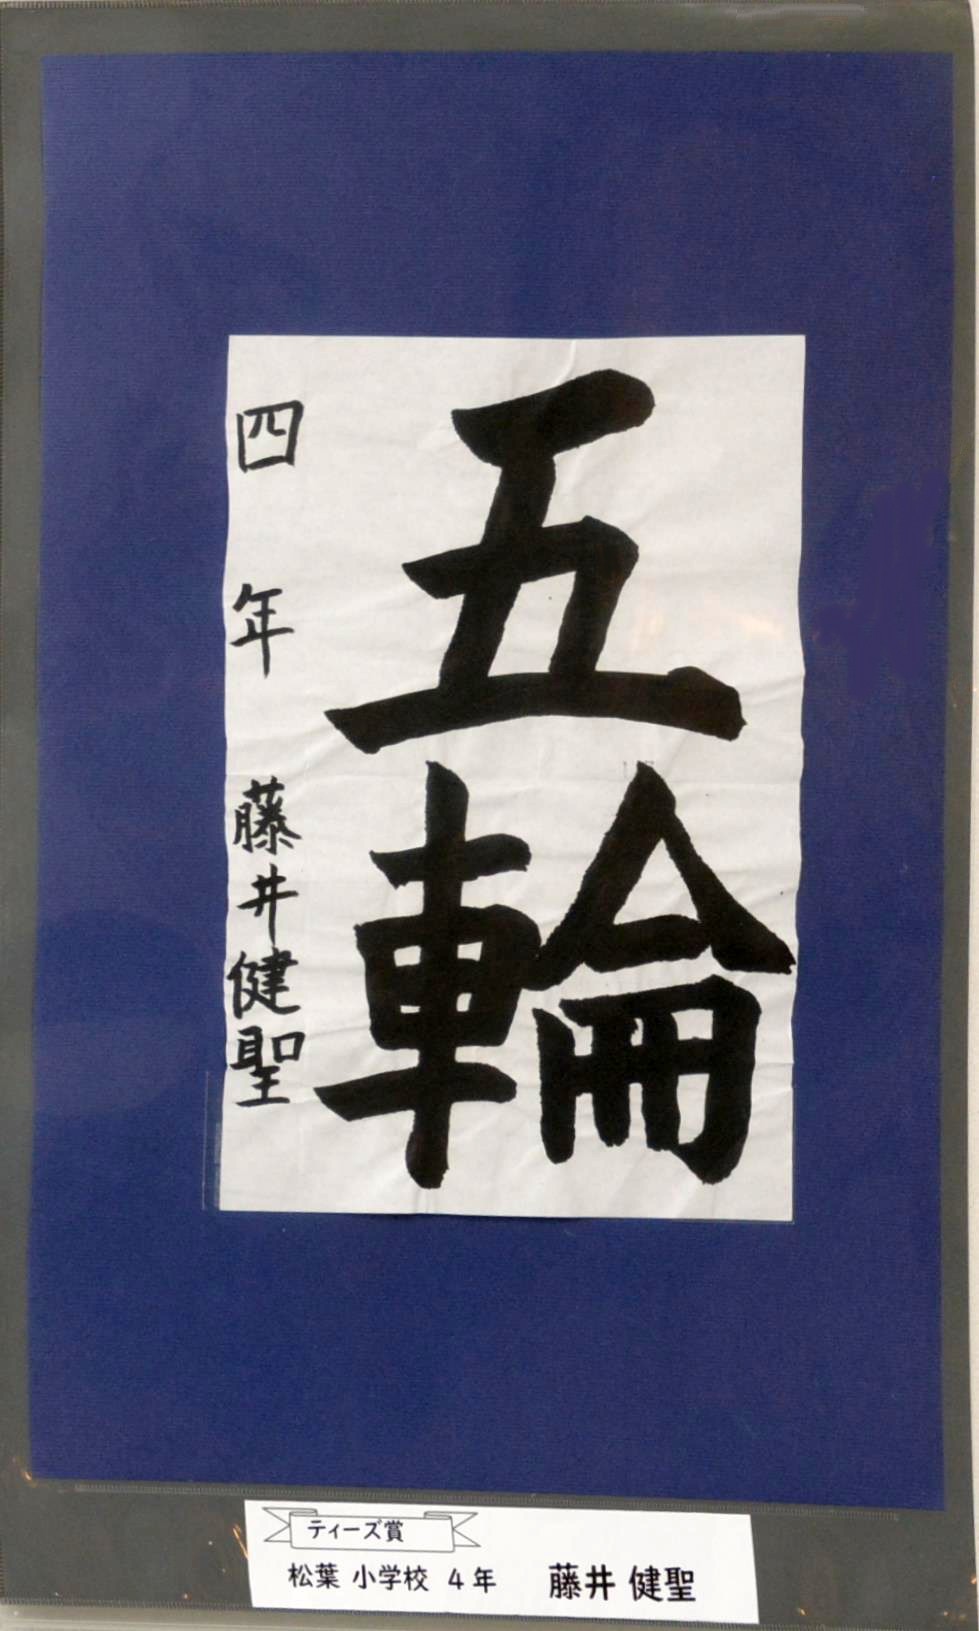 五輪
四年 藤井健聖
ティーズ賞
松葉 小学校 4年 藤井 健聖